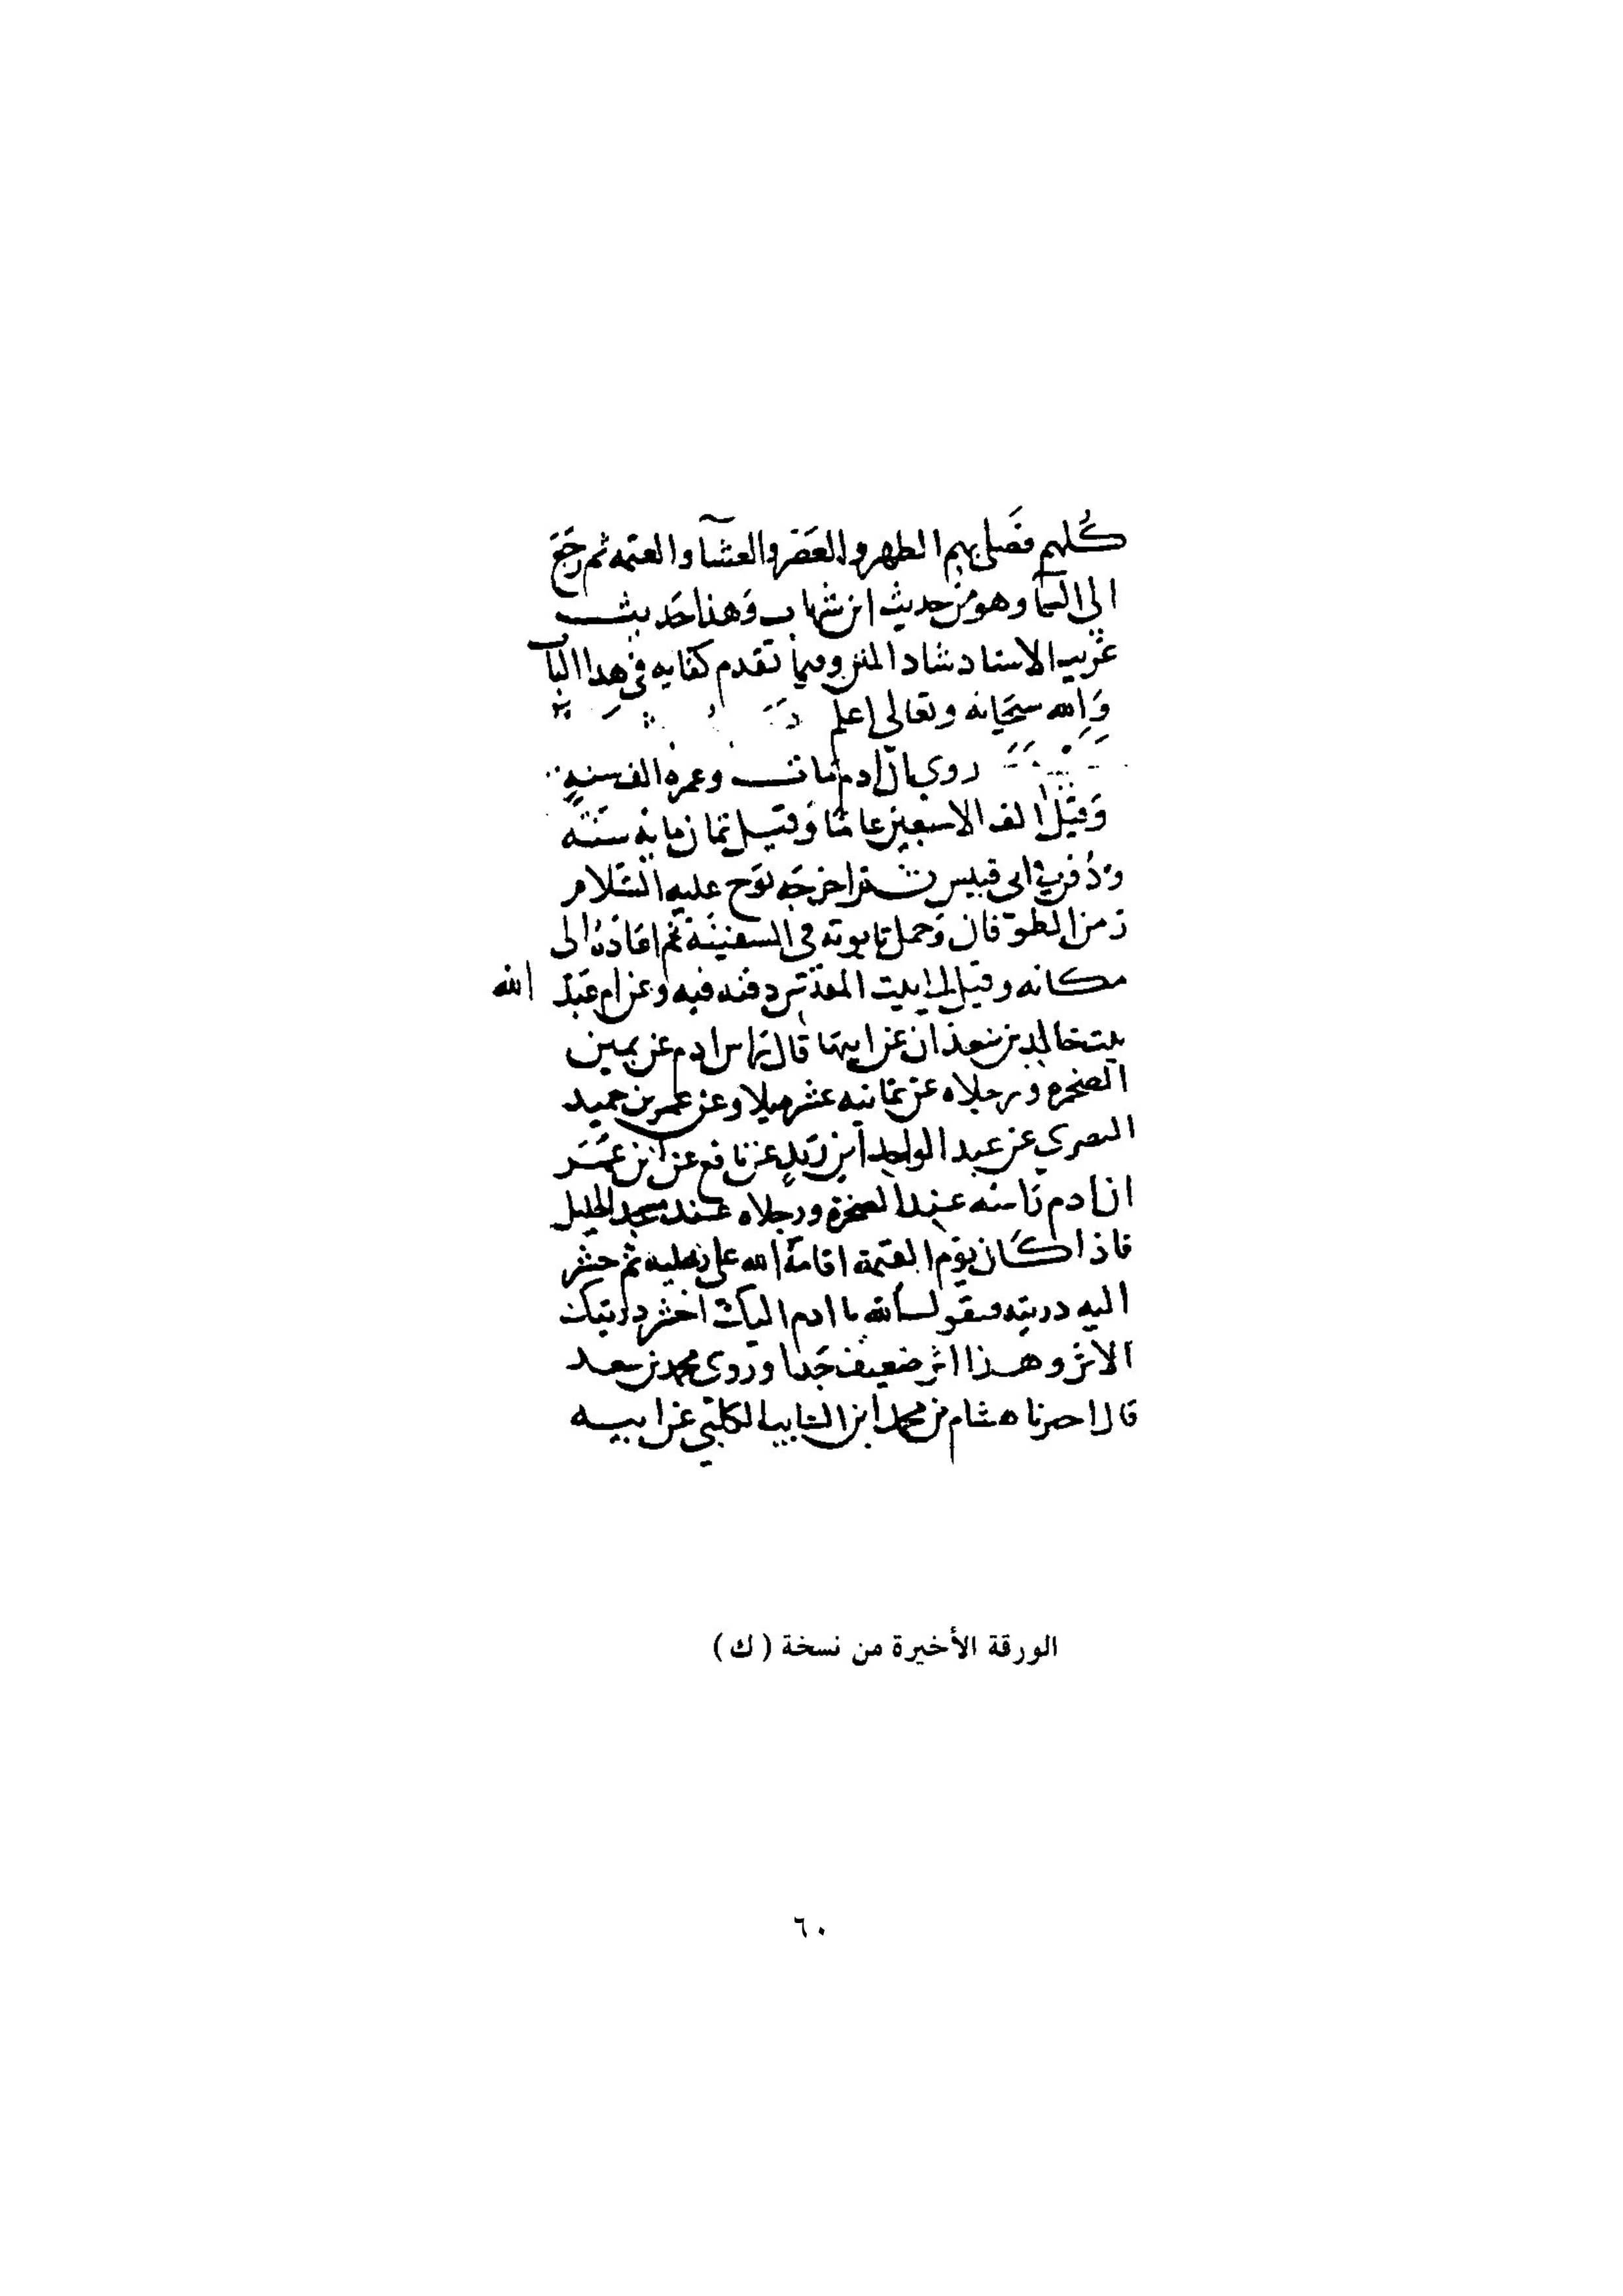 كُلهم فصَلى بهم الظهر والعَصر والعشآ والعتمه ثم رَجَعَ
الى السمآ وهو من حديث ابن شهاب وَهذا حَديث
غريب الاسناد شاد المتن وفيما تقدم كفايه في هدا الباب
وَالله سبحَانه وتعالى اعلم
روي ان ادم مات وعمره الف سنةٍ
وَقيْل الف الا سبعين عامًا وَقيل ثمان مايه سَنَة
وَدُفن في ابى قبيس ثم اخرجَه نوَح عليه السَّلام
زمن الطوفان وَحمل تابوته في السفينَة ثم اعَادَهُ الى
مكانه وقيل الى بيت المقدّس دفنه فيه وعن ام عَبْد الله
بنت خالد بن معدَان عن ابيهَا قال رَاس ادم عن يمين
الصخره ورجلاه عن ثمانيه عشر ميلا وعن عمر بن حميد
البصري عن عبد الواحد ابن زَيدٍ عن نافع عن ابن عُمَر
ان ادم رَاسه عند الصخرة ورجلاه عند مسجد الخليل
فاذا كَان يوَم القيمة اقامَهُ الله على رجليه ثم حشر
اليه دريته فيقول الله يا ادم اليك احشر دريتك
الاثر وهذا اثر ضعيف جَدا وروى محمد بن سعد
قال احبرنا هشام بن محمد ابن السَايب الكلبَي عن ابيه
الورقة الأخيرة من نسخة (ك)
٦٠